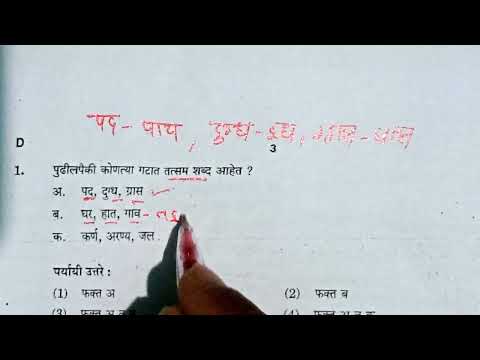 पद - पाय, दुग्ध - दूध, ग्रास - घास
D
3
1. पुढीलपैकी कोणत्या गटात तत्सम शब्द आहेत ?
अ. पद, दुग्ध, ग्रास
ब. घर, हात, गाव -
क. कर्ण, अरण्य, जल
पर्यायी उत्तरे :
(1) फक्त अ (2) फक्त ब
(3) (4)